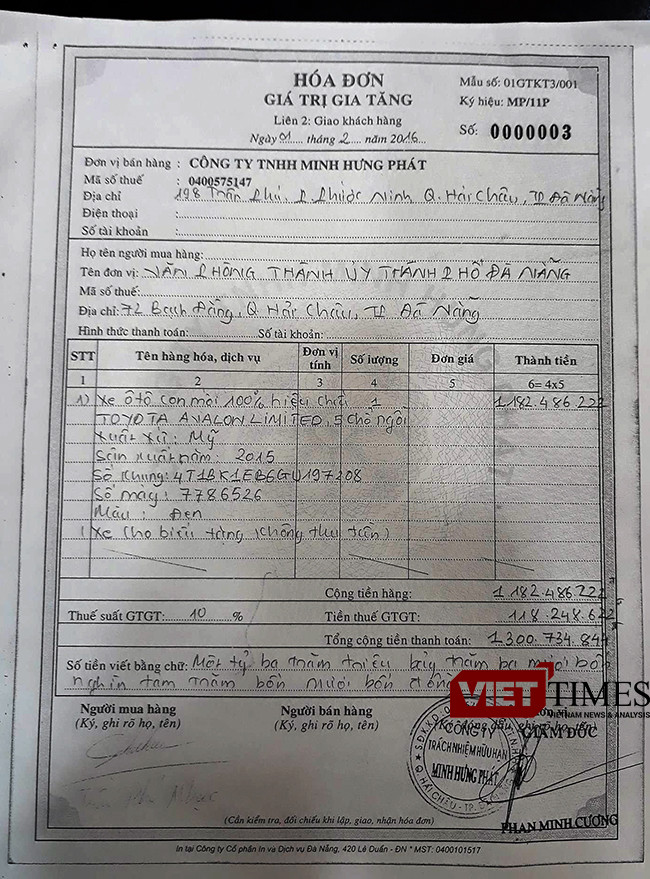 HÓA ĐƠN
GIÁ TRỊ GIA TĂNG
Liên 2: Giao khách hàng
Ngày 01 tháng 2 năm 2016
Mẫu số: 01GTKT3/001
Ký hiệu: MP/11P
Số: 0000003
Đơn vị bán hàng : CÔNG TY TNHH MINH HƯNG PHÁT
Mã số thuế : 0400575147
Địa chỉ 198 Trần Phú, P. Phước Ninh Q. Hải Châu, TP Đà Nẵng
Điện thoại :
Số tài khoản :
Họ tên người mua hàng:
Tên đơn vị: VĂN PHÒNG THÀNH ỦY THÀNH PHỐ ĐÀ NẴNG
Mã số thuế:
Địa chỉ: 72 Bạch Đằng, Q Hải Châu, TP Đà Nẵng
Hình thức thanh toán: Số tài khoản:
STT Tên hàng hóa, dịch vụ Đơn vị tính Số lượng Đơn giá Thành tiền
1 2 3 4 5 6= 4x5
1) Xe ôtô con mới 100% hiệu chữ 1 1.182.486.222
TOYOTA AVALON LIMITED, 5 chỗ ngồi
Xuất xứ: Mỹ
Sản xuất năm: 2015
Số khung: 4T1BK1EB6GU197208
Số máy: 7786526
Màu: Đen
(Xe cho biếu tặng không thu tiền)
Cộng tiền hàng: 1.182.486.222
Thuế suất GTGT: 10 % Tiền thuế GTGT: 118.248.622
Tổng cộng tiền thanh toán: 1.300.734.844
Số tiền viết bằng chữ: Một tỷ ba trăm triệu bảy trăm ba mươi bốn
nghìn tám trăm bốn mươi bốn đồng
Người mua hàng
(Ký, ghi rõ họ, tên)
Người bán hàng
(Ký, ghi rõ họ, tên)
VIETTIMES
VIETNAM NEWS & ANALYSIS
GIÁM ĐỐC
CÔNG TY
TRÁCH NHIỆM HỮU HẠN
MINH HƯNG PHÁT
Q. HẢI CHÂU - TP.
PHAN MINH CƯƠNG
(Cần kiểm tra, đối chiếu khi lập, giao, nhận hóa đơn)
In tại Công ty Cổ phần In và Dịch vụ Đà Nẵng, 420 Lê Duẩn - ĐN * MST: 0400101517